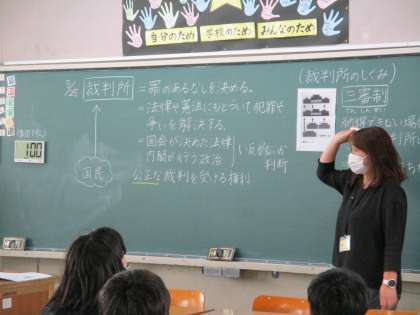 自分のため
学校のため
みんなのため
裁判所
=罪のあるなしを決める。
=法律や憲法にもとづいて犯罪や
争いを解決する。
=国会が決めた法律
内閣が行う政治
い反がないか
判断
公正な裁判を受ける権利
国民
100
(裁判所のしくみ)
三審制
さんしん
納得できない場